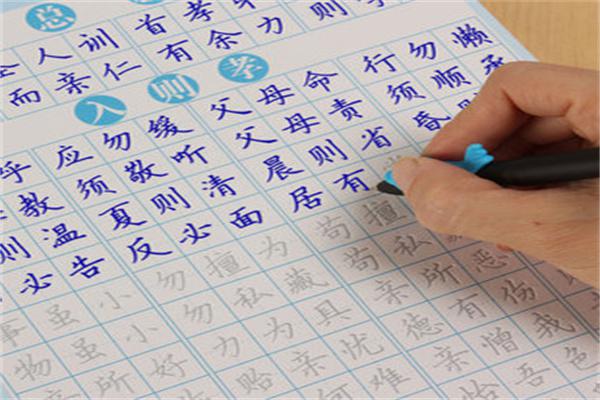 总
人训 首孝
而亲仁 有余力 则
入则孝
应勿缓 父母命 行勿懒
教 须敬听 父母责 须顺承
则温 夏则清 晨则省 昏
必告 反必面 居有
事虽小 勿擅为 苟擅
物虽小 勿私藏 苟私
亲所好 力为具 亲所恶
贻亲忧 德有伤
何难 亲憎我
怡吾色